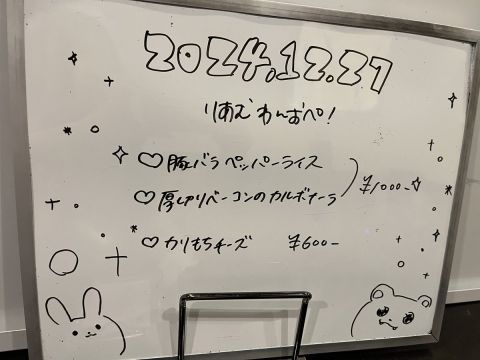 2024.12.27
りあむわんおぺ!
♡豚バラペッパーライス
♡厚切りベーコンのカルボナーラ
¥1000-
♡かりもちチーズ ¥600-